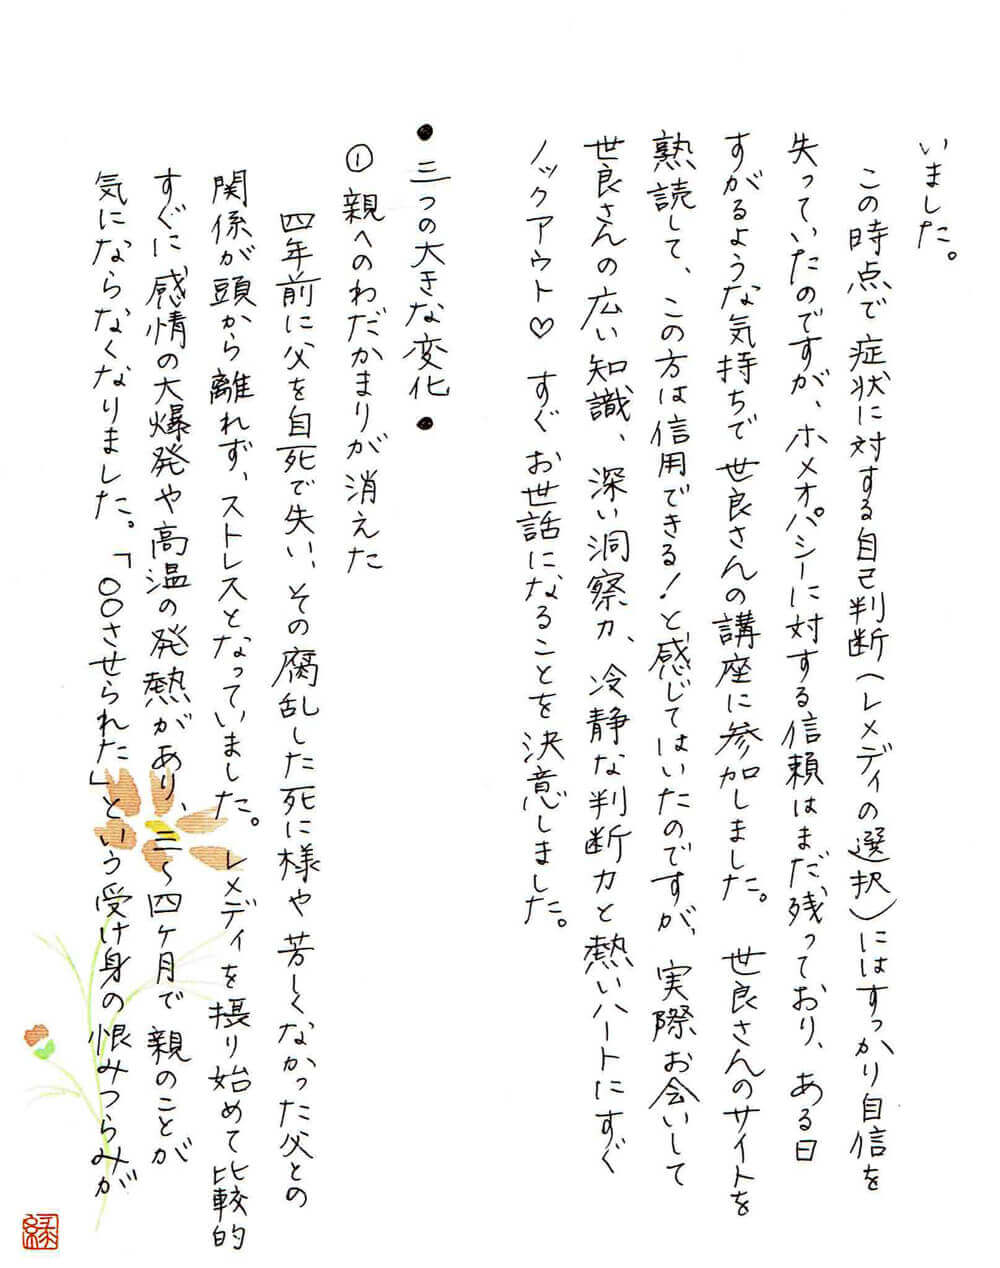 いました。
この時点で症状に対する自己判断(レメディの選択)にはすっかり自信を
失っていたのですが、ホメオパシーに対する信頼はまだ残っており、ある日
すがるような気持ちで世良さんの講座に参加しました。世良さんのサイトを
熟読して、この方は信用できる!と感じてはいたのですが、実際お会いして
世良さんの広い知識、深い洞察力、冷静な判断力と熱いハートにすぐ
ノックアウト♡ すぐお世話になることを決意しました。
●三つの大きな変化●
①親へのわだかまりが消えた
四年前に父を自死で失い、その腐乱した死に様や芳しくなかった父との
関係が頭から離れず、ストレスとなっていました。レメディを摂り始めて比較的
すぐに感情の大爆発や高温の発熱があり、三〜四ヶ月で親のことが
気にならなくなりました。「○○させられた」という受け身の恨みつらみが
縁